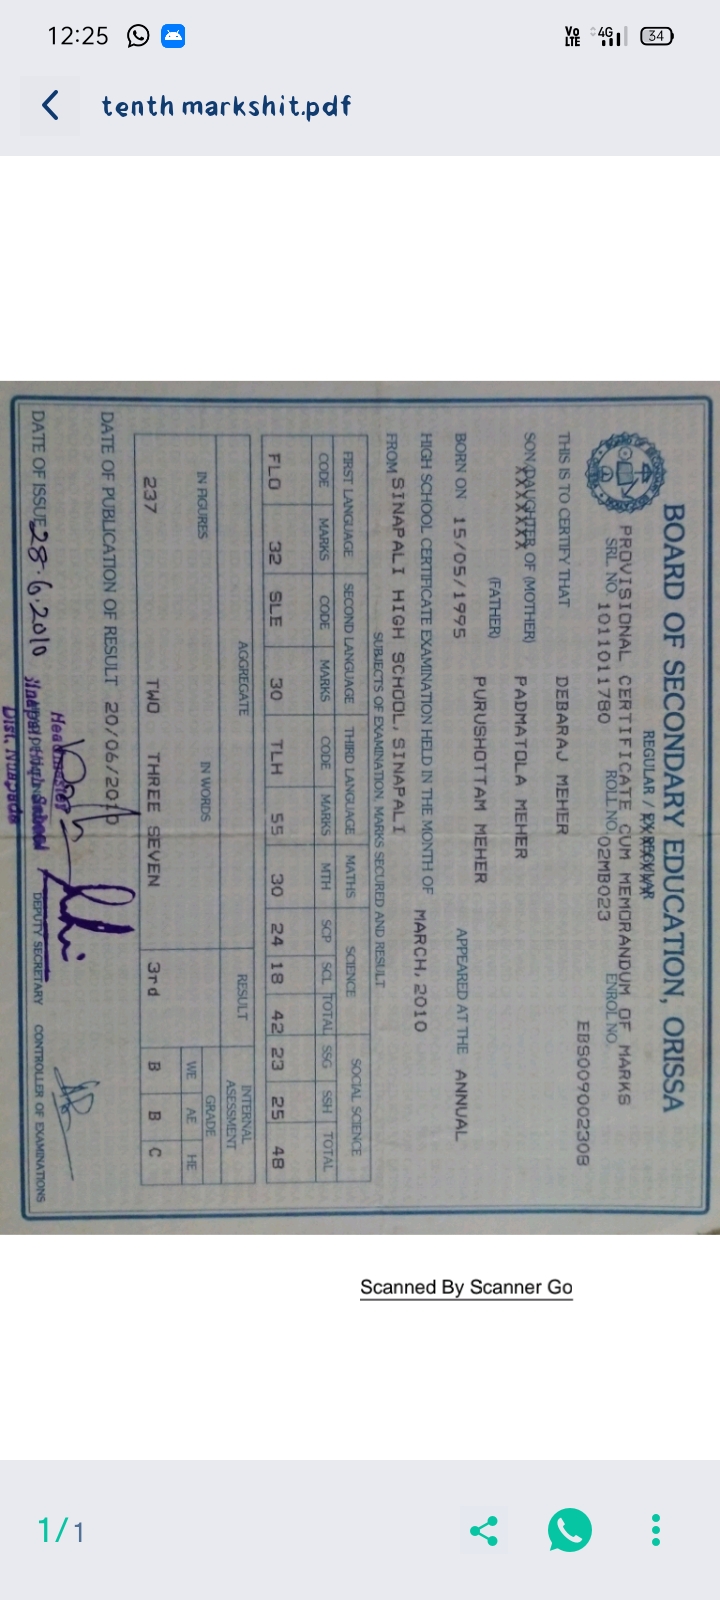 12:25
Vo LTE 4G 34
tenth markshit.pdf
BOARD OF SECONDARY EDUCATION, ORISSA
REGULAR /
PROVISIONAL CERTIFICATE CUM MEMORANDUM OF MARKS
SRL NO. 1011011780 ROLL NO. 02MB023 ENROL NO.
EBS009002308
THIS IS TO CERTIFY THAT DEBARAJ MEHER
SON/DAUGHTER OF (MOTHER) PADMATOLA MEHER
(FATHER) PURUSHOTTAM MEHER
BORN ON 15/05/1995 APPEARED AT THE ANNUAL
HIGH SCHOOL CERTIFICATE EXAMINATION HELD IN THE MONTH OF MARCH,2010
FROM SINAPALI HIGH SCHOOL,SINAPALI
SUBJECTS OF EXAMINATION, MARKS SECURED AND RESULT
FIRST LANGUAGE SECOND LANGUAGE THIRD LANGUAGE MATHS SCIENCE SOCIAL SCIENCE
CODE MARKS CODE MARKS CODE MARKS MTH SCP SCL TOTAL SSG SSH TOTAL
FLO 32 SLE 30 TLH 55 30 24 18 42 23 25 48
AGGREGATE RESULT INTERNAL ASESSMENT
IN FIGURES IN WORDS GRADE
WE AE HE
237 TWO THREE SEVEN 3rd B B C
DATE OF PUBLICATION OF RESULT 20/06/2010
DATE OF ISSUE 28.6.2010 DEPUTY SECRETARY CONTROLLER OF EXAMINATIONS
Headmaster
Sinapali High School
Dist. Nuapada
Scanned By Scanner Go
1/1